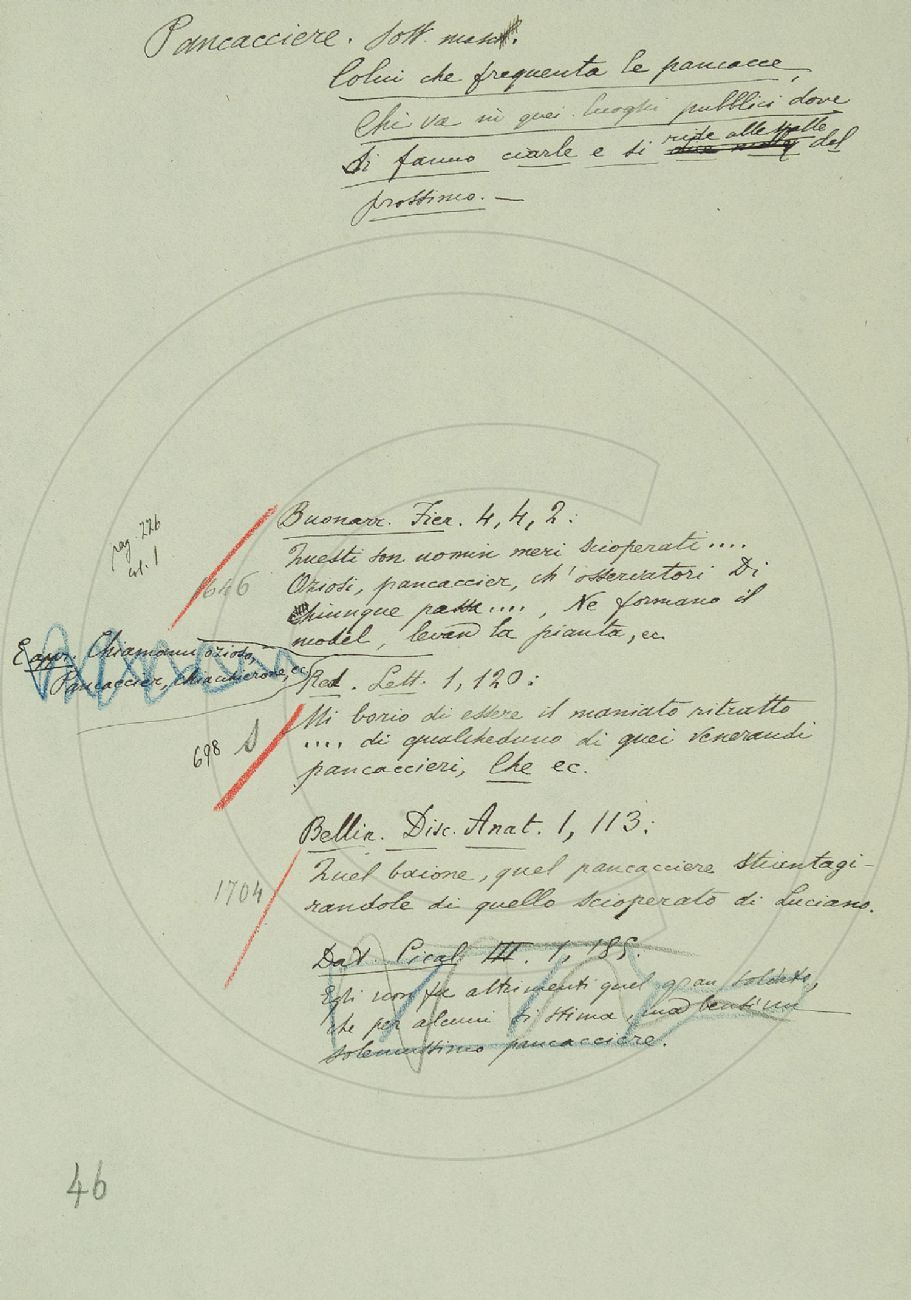 Pancacciere. Sost. masc.
Colui che frequenta le pancacce,
Chi va in quei luoghi pubblici dove
si fanno ciarle e si ride alle spalle del
prossimo. —
pag. 226
col. 1
Buonarr. Fier. 4, 4, 2:
1646
Questi son uomin meri scioperati....
Oziosi, pancaccier, ch' osservatori Di
Chiunque passa...., Ne formano il
model, levan la pianta, ec.
E appr. Chiamanmi ozioso,
Pancaccier, chiacchierone, ec.
Red. Lett. 1, 120:
698 S
Mi borio di essere il maniato ritratto
.... di qualcheduno di quei venerandi
pancaccieri, Che ec.
Bellin. Disc. Anat. 1, 113:
1704
Quel baione, quel pancacciere
di quello scioperato di Luciano.
Dat. Cical. III. 1, 185.
Egli non fu altrimenti quel gran soldato,
che per alcuni si stima, ma bensì un
solennissimo pancacciere.
46